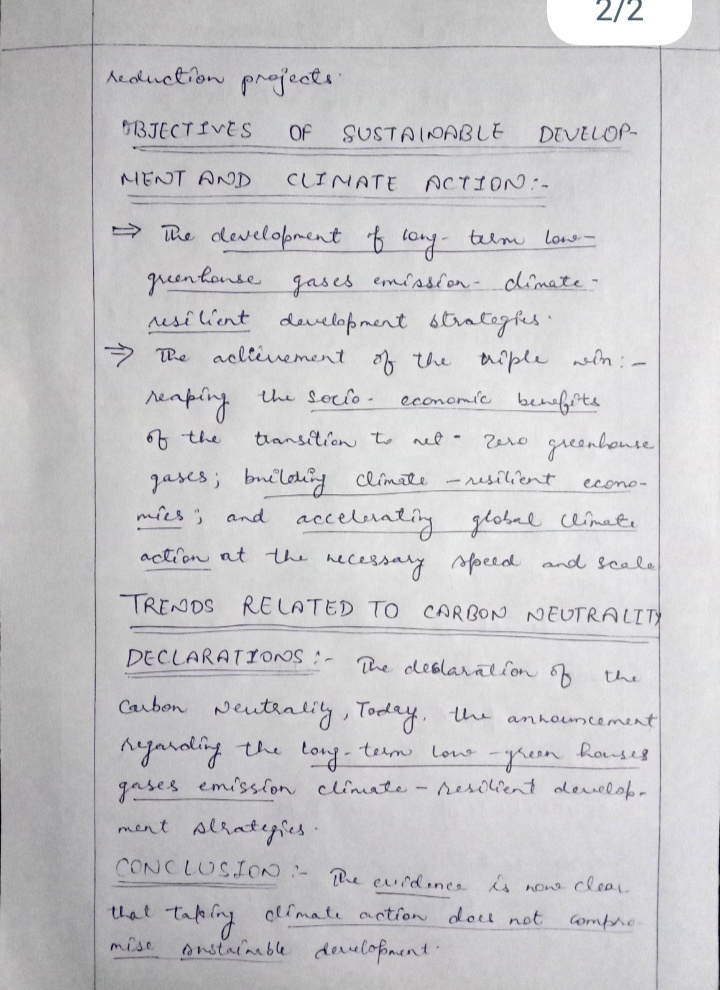 2/2
reduction projects.
OBJECTIVES OF SUSTAINABLE DEVELOP-
MENT AND CLIMATE ACTION:-
⇒ The development of long-term low-
greenhouse gases emission-climate-
resilient development strategies.
⇒ The achievement of the triple win:-
reaping the socio-economic benefits
of the transition to net-zero greenhouse
gases; building climate-resilient econo-
mies; and accelerating global climate
action at the necessary speed and scale
TRENDS RELATED TO CARBON NEUTRALITY
DECLARATIONS:- The declaration of the
Carbon Neutrality, Today, the announcement
regarding the long-term low-green houses
gases emission climate-resilient develop-
ment strategies.
CONCLUSION:- The evidence is now clear
that taking climate action does not compro-
mise sustainable development.